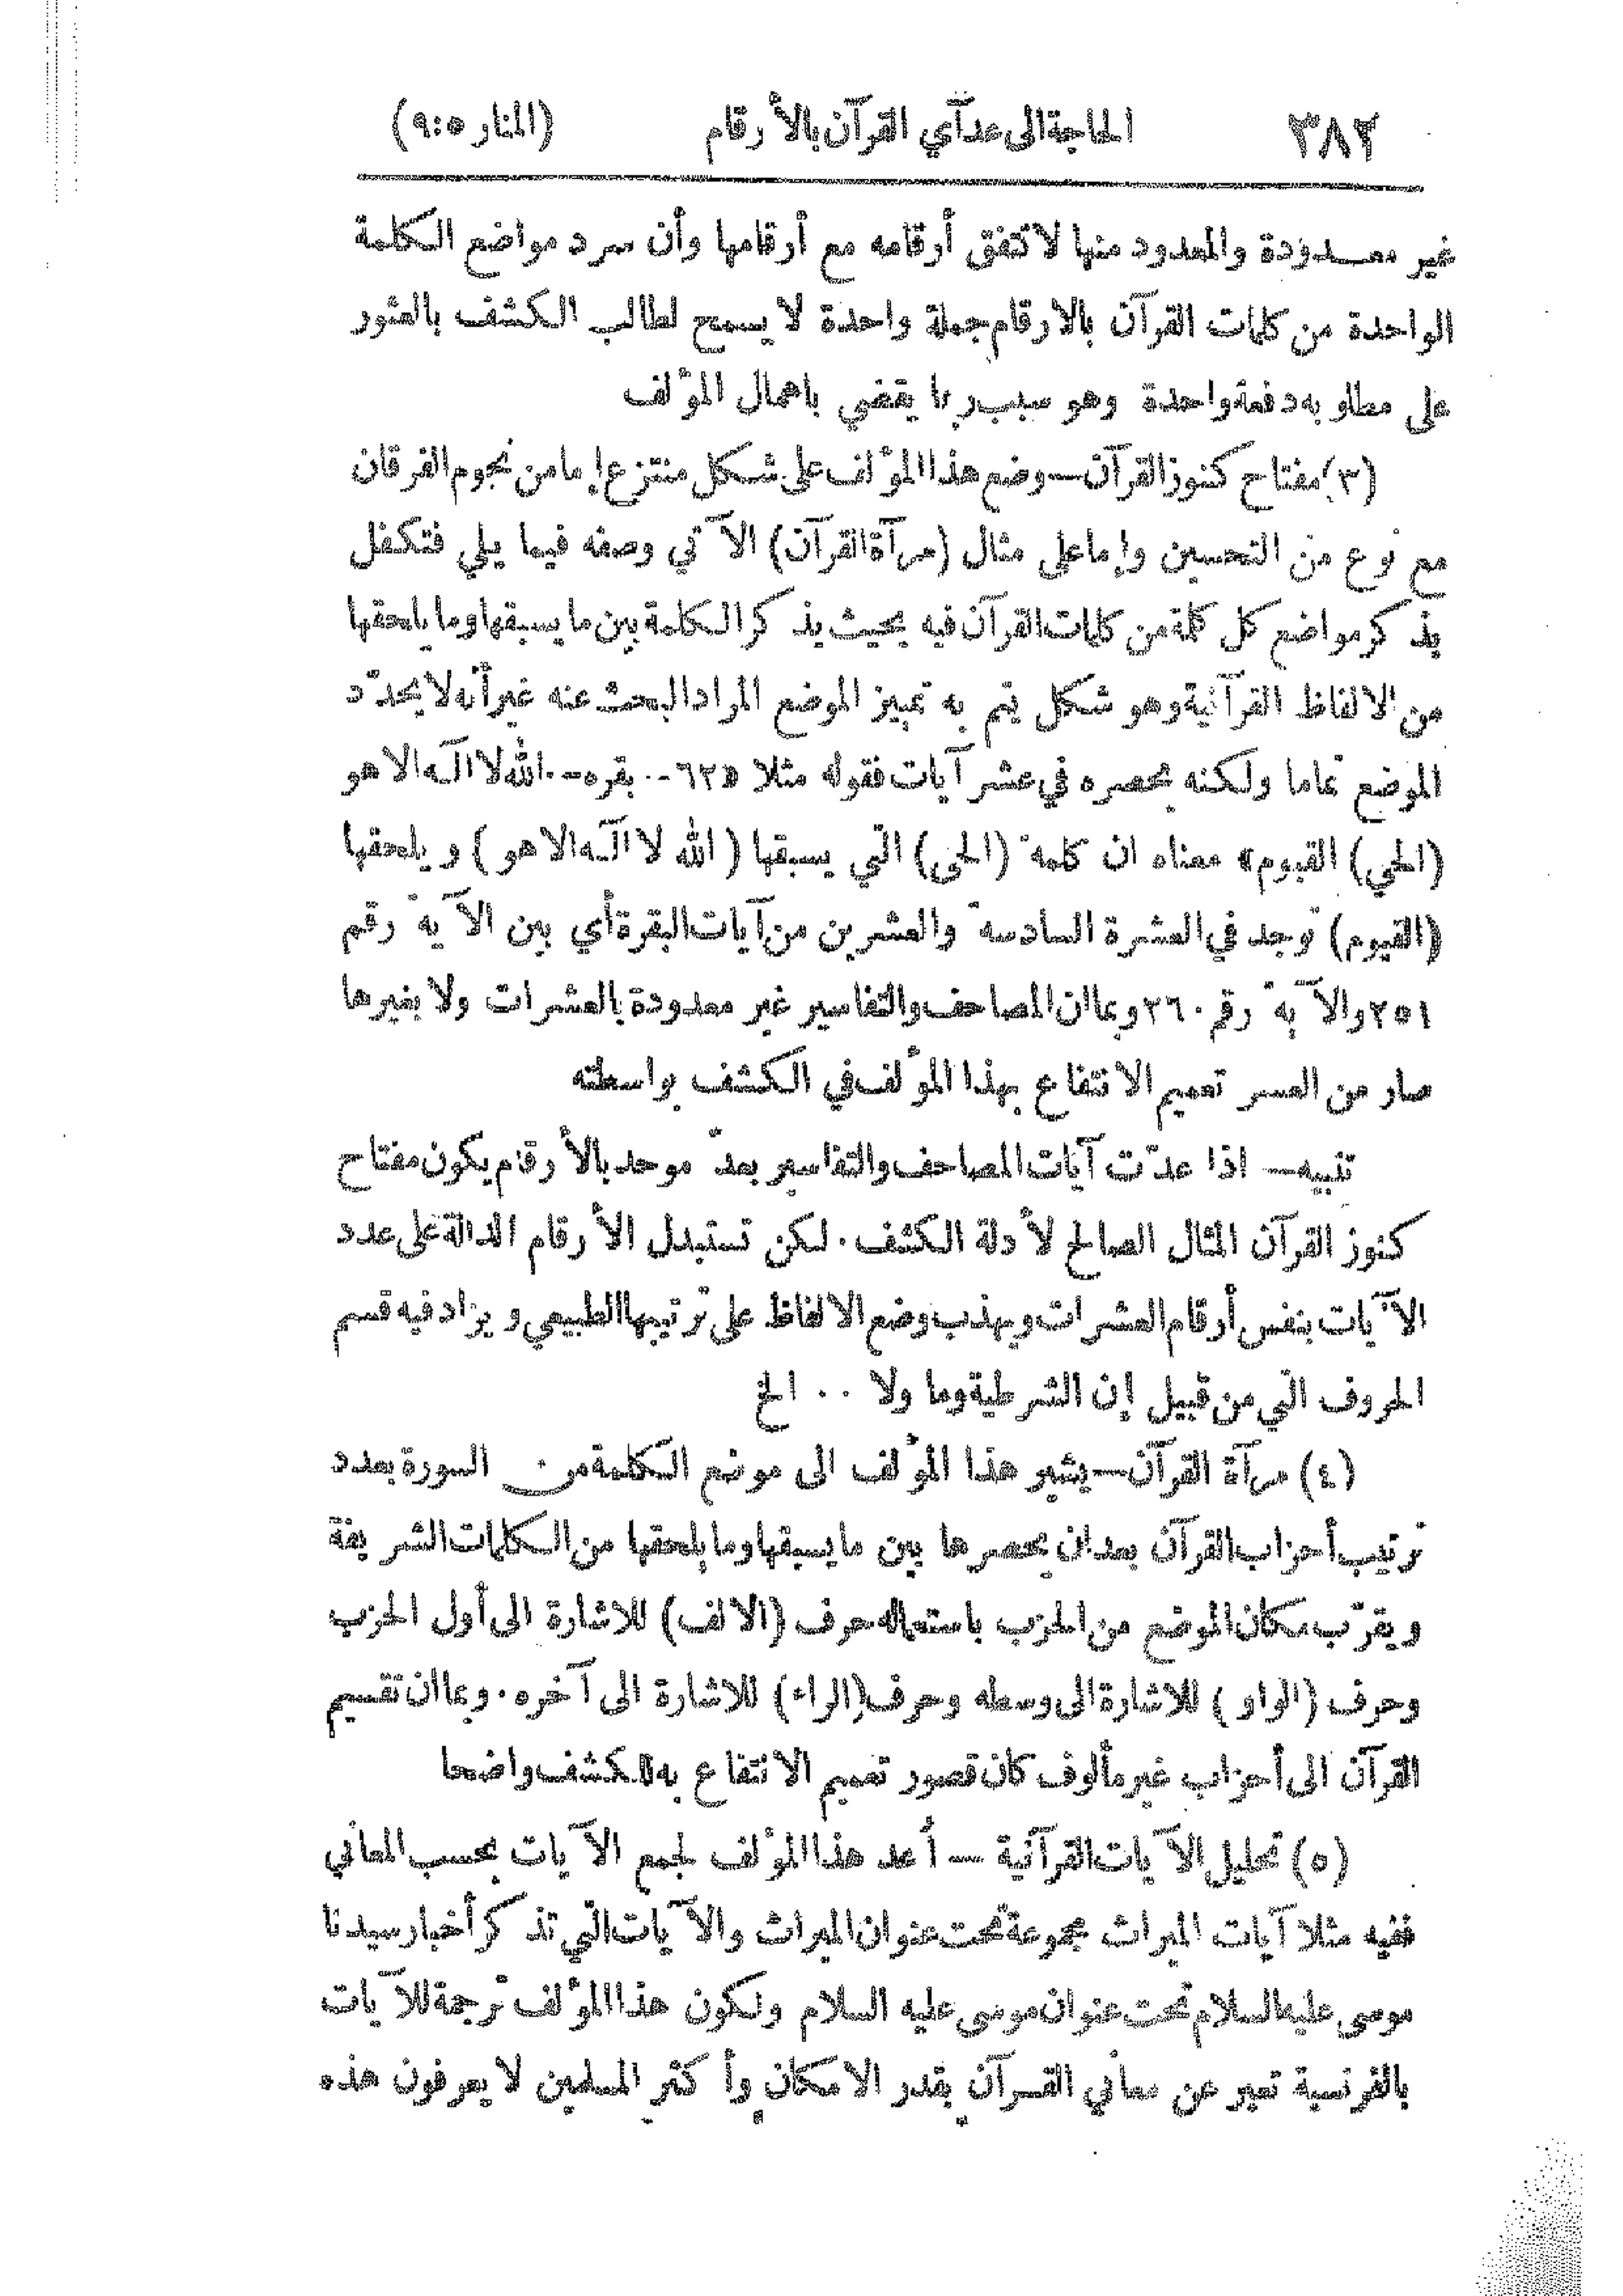 ٣٨٢ الحاجة الى عد آي القرآن بالأرقام (المنار ٥:٩)
غير معدودة والمعدود منها لا تتفق أرقامه مع أرقامها وأن سرد مواضع الكلمة
الواحدة من كلمات القرآن بالارقام جملة واحدة لا يسمح لطالب الكشف بالعثور
على مطلوبه دفعة واحدة وهو سبب ربما يقضي باهمال المؤلف
(٣) مفتاح كنوز القرآن — وضع هذا المؤلف على شكل منتزع إما من نجوم الفرقان
مع نوع من التحسين وإما على مثال (مرآة القرآن) الآتي وصفه فيما يلي فتكفل
بذكر مواضع كل كلمة من كلمات القرآن فيه بحيث يذكر الكلمة بين ما يسبقها وما يلحقها
من الالفاظ القرآنية وهو شكل يتم به تمييز الموضع المراد البحث عنه غير أنه لا يحدّد
الموضع تماما ولكنه يحصره في عشر آيات فقوله مثلا «٦٢ -. بقره -. الله لا اله الا هو
(الحي) القيوم» معناه ان كلمة (الحي) التي يسبقها (الله لا اله الا هو) ويلحقها
(القيوم) توجد في العشرة السادسة والعشرين من آيات البقرة أي بين الآية رقم
٢٥١ والآية رقم ٢٦٠ وبما ان المصاحف والتفاسير غير معدودة بالعشرات ولا بغيرها
صار من العسر تعميم الانتفاع بهذا المؤلف في الكشف بواسطته
تنبيه — اذا عدّت آيات المصاحف والتفاسير بعدّ موحد بالأرقام يكون مفتاح
كنوز القرآن المثال الصالح لأدلة الكشف. لكن تستبدل الأرقام الدالة على عدد
الآيات بنفس أرقام العشرات ويهذب وضع الالفاظ على ترتيبها الطبيعي ويزاد فيه قسم
الحروف التي من قبيل إن الشرطية وما ولا .. الخ
(٤) مرآة القرآن — يشير هذا المؤلف الى موضع الكلمة من السورة بعدد
ترتيب أحزاب القرآن بعد ان يحصرها بين ما يسبقها وما يلحقها من الكلمات الشريفة
ويقرّب مكان الموضع من الحزب باستعماله حرف (الالف) للاشارة الى أول الحزب
وحرف (الواو) للاشارة الى وسطه وحرف (الراء) للاشارة الى آخره. وبما ان تقسيم
القرآن الى أحزاب غير مألوف كان قصور تعميم الانتفاع به للكشف واضحا
(٥) تحليل الآيات القرآنية — أعد هذا المؤلف لجمع الآيات بحسب المعاني
ففيه مثلا آيات الميراث مجموعة تحت عنوان الميراث والآيات التي تذكر أخبار سيدنا
موسى عليه السلام تحت عنوان موسى عليه السلام ولكون هذا المؤلف ترجمة للآيات
بالفرنسية تعبر عن معاني القرآن بقدر الامكان وأكثر المسلمين لا يعرفون هذه